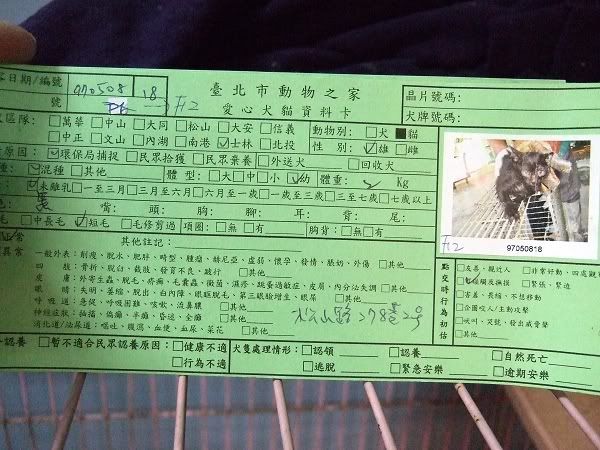 日期/編號 970508 18 臺北市動物之家 晶片號碼:
號 F12 愛心犬貓資料卡 犬牌號碼:
區隊: □萬華 □中山 □大同 □松山 □大安 □信義 動物別: □犬 ■貓
□中正 □文山 □內湖 □南港 ☑士林 □北投 性別: ☑雄 □雌
原因: ☑環保局捕捉 □民眾拾獲 □民眾棄養 □外送犬 □回收犬
☑混種 □其他 體型: □大 □中 □小 ☑幼 體重: Kg
☑未離乳 □一至三月 □三至六月 □六月至一歲 □一至三歲 □三至七歲 □七歲以上
黑 嘴: 頭: 胸: 腳: 耳: 背: 尾:
□中長毛 ☑短毛 □毛修剪過 項圈: □無 □有 胸背: □無 □有
正常 其他註記:
異常 一般外表: 削瘦、脫水、肥胖、畸型、腫瘤、赫尼亞、虛弱、懷孕、發情、脹奶、外傷 □其他
四肢: 骨折、脫臼、截肢、發育不良、跛行 □其他
皮膚: 外寄生蟲、脫毛、疥癬、毛囊蟲、黴菌、濕疹、跳蚤過敏症、皮屑、內分泌失調 □其他
眼睛: 失明、萎縮、脫出、白內障、眼瞼脫毛、第三眼瞼增生、眼屎 □其他
呼吸道: 急促、呼吸困難、咳嗽、流鼻涕 □其他
神經症狀: 抽搐、偏癱、半癱、昏迷、全癱 □其他
消化道/泌尿道: 嘔吐、腹瀉、血便、血尿、菜花 □其他
278巷2號
F12 97050818
點交時行為初估
□友善、親近人 □非常好動、四處觀
□緊張、緊迫
□害羞、畏縮、不想移動
□企圖咬人/主動攻擊
□吠叫、哭號、發出威脅聲
□其他
認養 □暫不適合民眾認養原因: □健康不適 □行為不適
犬隻處理情形: □認領 □認養 □自然死亡
□逃脫 □緊急安樂 □逾期安樂